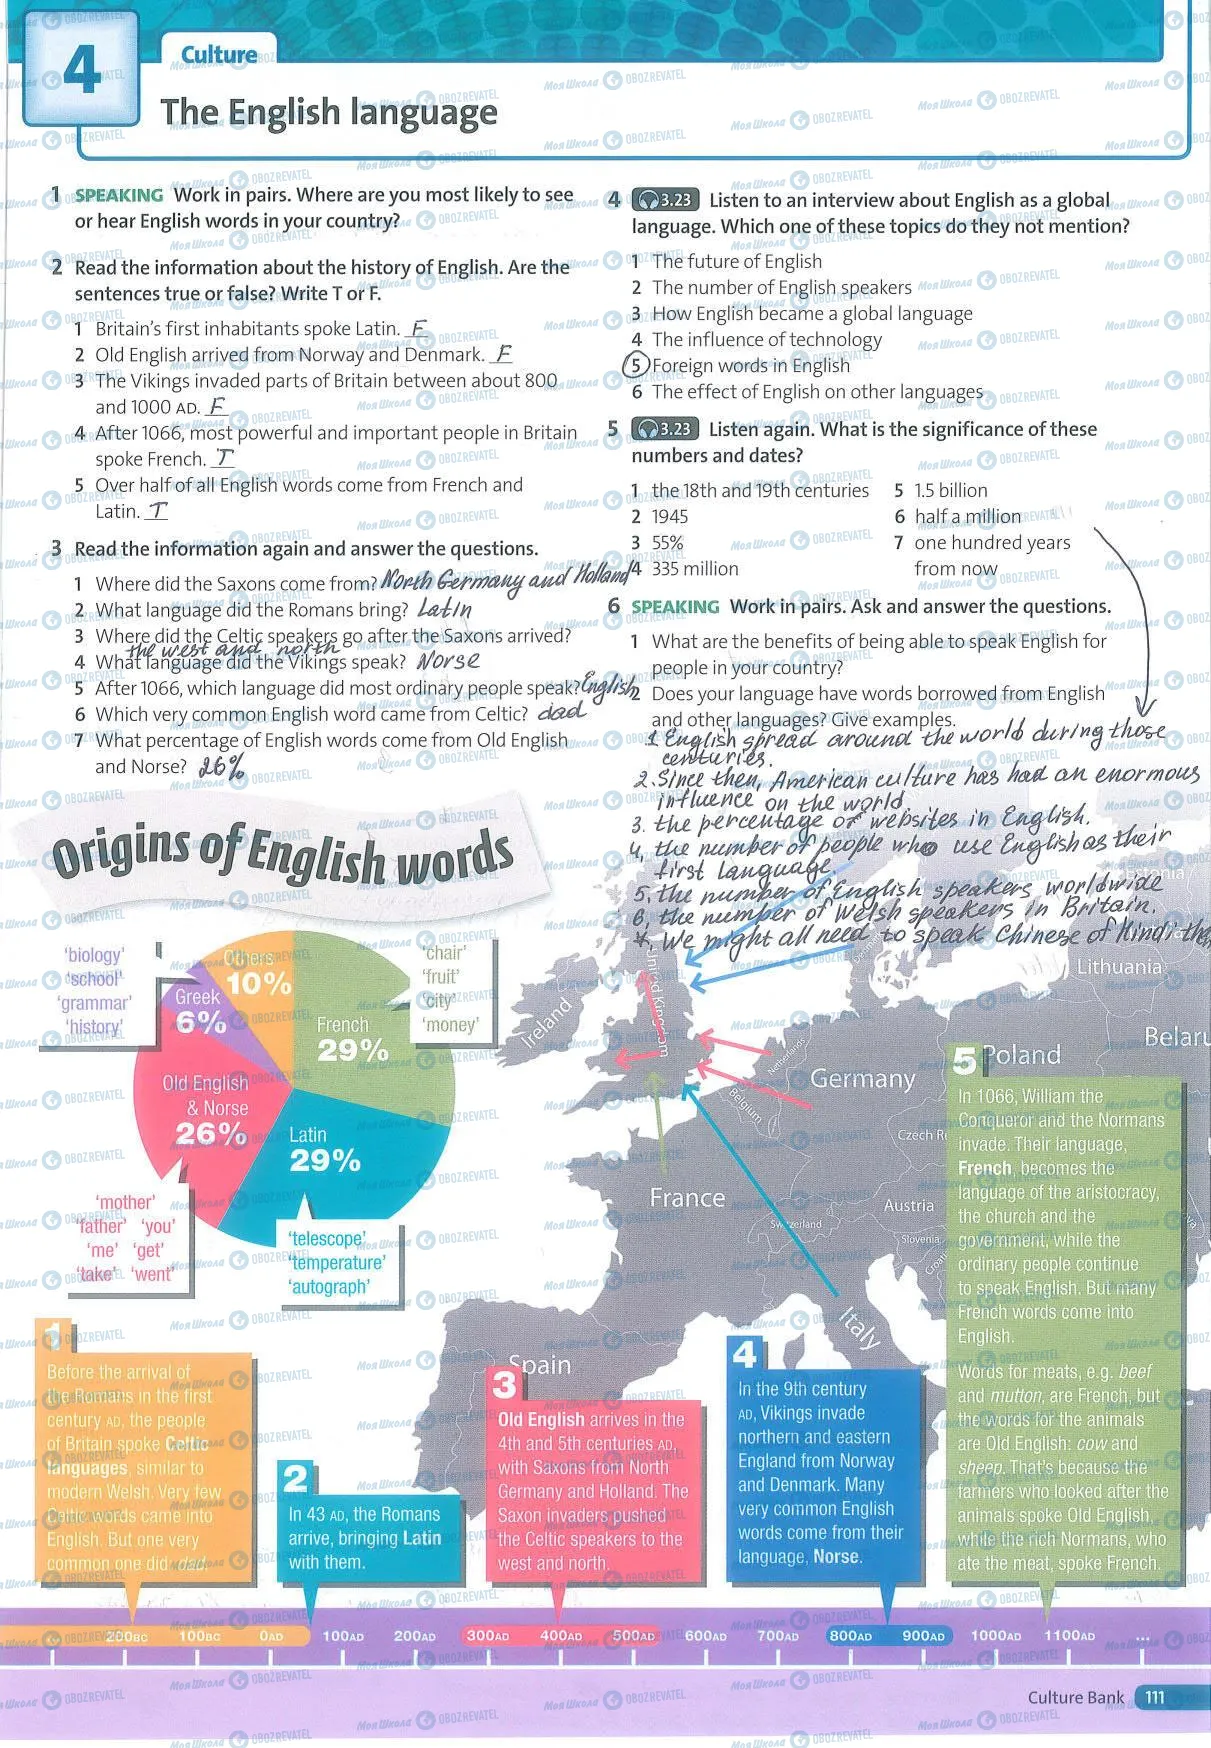 4
Culture
The English language
1 SPEAKING Work in pairs. Where are you most likely to see
or hear English words in your country?
2 Read the information about the history of English. Are the
sentences true or false? Write T or F.
1 Britain's first inhabitants spoke Latin. F
2 Old English arrived from Norway and Denmark. F
3 The Vikings invaded parts of Britain between about 800
and 1000 AD. F
4 After 1066, most powerful and important people in Britain
spoke French. T
5 Over half of all English words come from French and
Latin. T
3 Read the information again and answer the questions.
1 Where did the Saxons come from? North Germany and Holland
2 What language did the Romans bring? Latin
3 Where did the Celtic speakers go after the Saxons arrived?
the west and north
4 What language did the Vikings speak? Norse
5 After 1066, which language did most ordinary people speak? English
6 Which very common English word came from Celtic? dad
7 What percentage of English words come from Old English
and Norse? 26%
4 3.23 Listen to an interview about English as a global
language. Which one of these topics do they not mention?
1 The future of English
2 The number of English speakers
3 How English became a global language
4 The influence of technology
5 Foreign words in English
6 The effect of English on other languages
5 3.23 Listen again. What is the significance of these
numbers and dates?
1 the 18th and 19th centuries
2 1945
3 55%
4 335 million
5 1.5 billion
6 half a million
7 one hundred years
from now
6 SPEAKING Work in pairs. Ask and answer the questions.
1 What are the benefits of being able to speak English for
people in your country?
2 Does your language have words borrowed from English
and other languages? Give examples.
1 English spread around the world during those
centuries.
2. Since then, American culture has had an enormous
influence on the world.
3. the percentage of websites in English.
4, the number of people who use English as their
first language.
5, the number of English speakers worldwide
6, the number of Welsh speakers in Britain.
We might all need to speak Chinese of Hindi than
Origins of English words
'biology'
'school'
'grammar'
'history'
Others
10%
Greek
6%
French
29%
'chair'
'fruit'
'city'
'money'
Old English
& Norse
26%
Latin
29%
'mother'
'father' 'you'
'me' 'get'
'take' 'went'
'telescope'
'temperature'
'autograph'
Estonia
Lithuania
Ireland
United Kingdom
Netherlands
Belgium
Germany
Poland
Belaru
Czech Re
France
Austria
Switzerland
Slovenia
Croatia
Italy
Spain
1
Before the arrival of
the Romans in the first
century AD, the people
of Britain spoke Celtic
languages, similar to
modern Welsh. Very few
Celtic words came into
English. But one very
common one did: dad.
2
In 43 AD, the Romans
arrive, bringing Latin
with them.
3
Old English arrives in the
4th and 5th centuries AD,
with Saxons from North
Germany and Holland. The
Saxon invaders pushed
the Celtic speakers to the
west and north.
4
In the 9th century
AD, Vikings invade
northern and eastern
England from Norway
and Denmark. Many
very common English
words come from their
language, Norse.
5
In 1066, William the
Conqueror and the Normans
invade. Their language,
French, becomes the
language of the aristocracy,
the church and the
government, while the
ordinary people continue
to speak English. But many
French words come into
English.
Words for meats, e.g. beef
and mutton, are French, but
the words for the animals
are Old English: cow and
sheep. That's because the
farmers who looked after the
animals spoke Old English,
while the rich Normans, who
ate the meat, spoke French.
200BC 100BC 0AD 100AD 200AD 300AD 400AD 500AD 600AD 700AD 800AD 900AD 1000AD 1100AD ...
Culture Bank 111
Моя Школа OBOZREVATEL